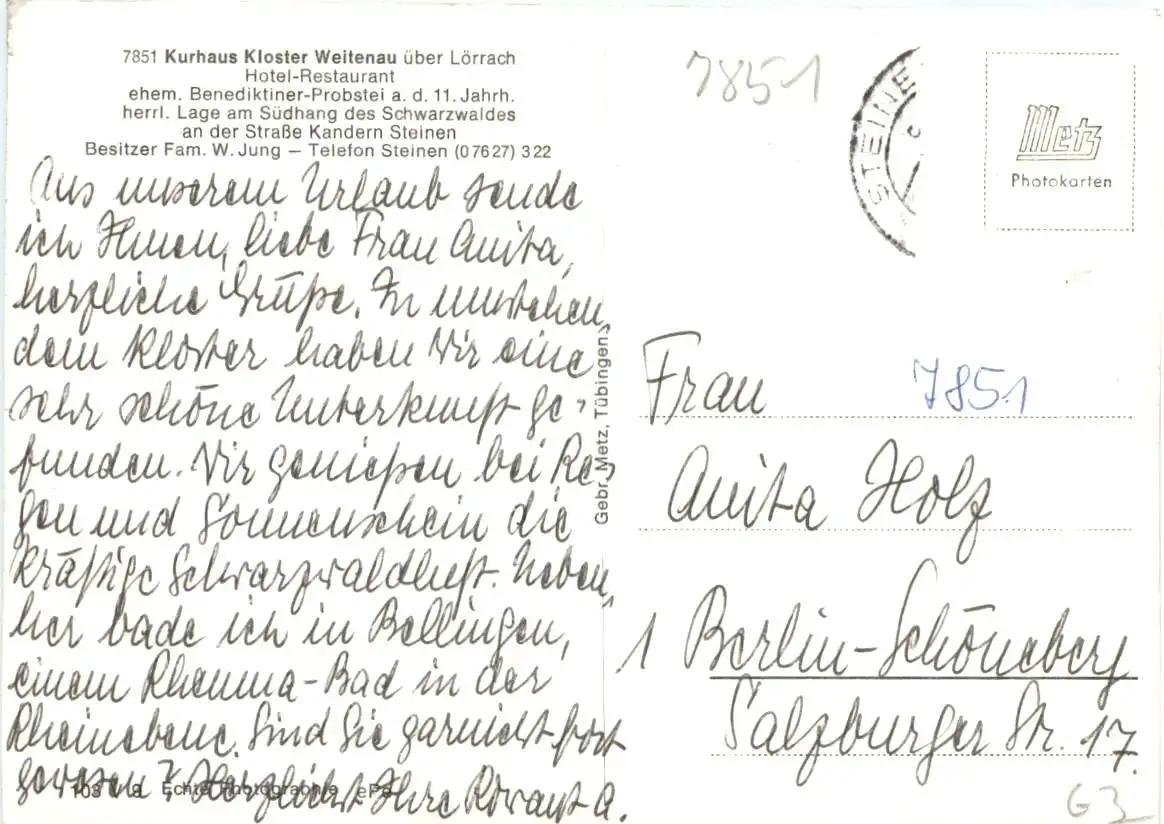 7851 Kurhaus Kloster Weitenau über Lörrach
Hotel-Restaurant
ehem. Benediktiner-Probstei a. d. 11. Jahrh.
herrl. Lage am Südhang des Schwarzwaldes
an der Straße Kandern Steinen
Besitzer Fam. W. Jung — Telefon Steinen (07627) 322
Aus unserem Urlaub sende
ich Ihnen, liebe Frau Anita,
herzliche Grüße. In umstehen,
dem Kloster haben Wir eine
sehr schöne Unterkunft ge-
funden. Wir genießen bei Re-
gen und Sonnenschein die
kräftige Schwarzwaldluft. Neben,
her bade ich in Bellingen,
einem Rheuma-Bad in der
Rheinebene. Sind Sie garnicht fort
gewesen? Herzlichst Ihre A.
103 Echte Photographie
Gebr. Metz, Tübingen
7851
STEINE
Metz
Photokarten
Frau
7851
Anita Holz
1 Berlin-Schöneberg
Salzburger Str. 17.
G3